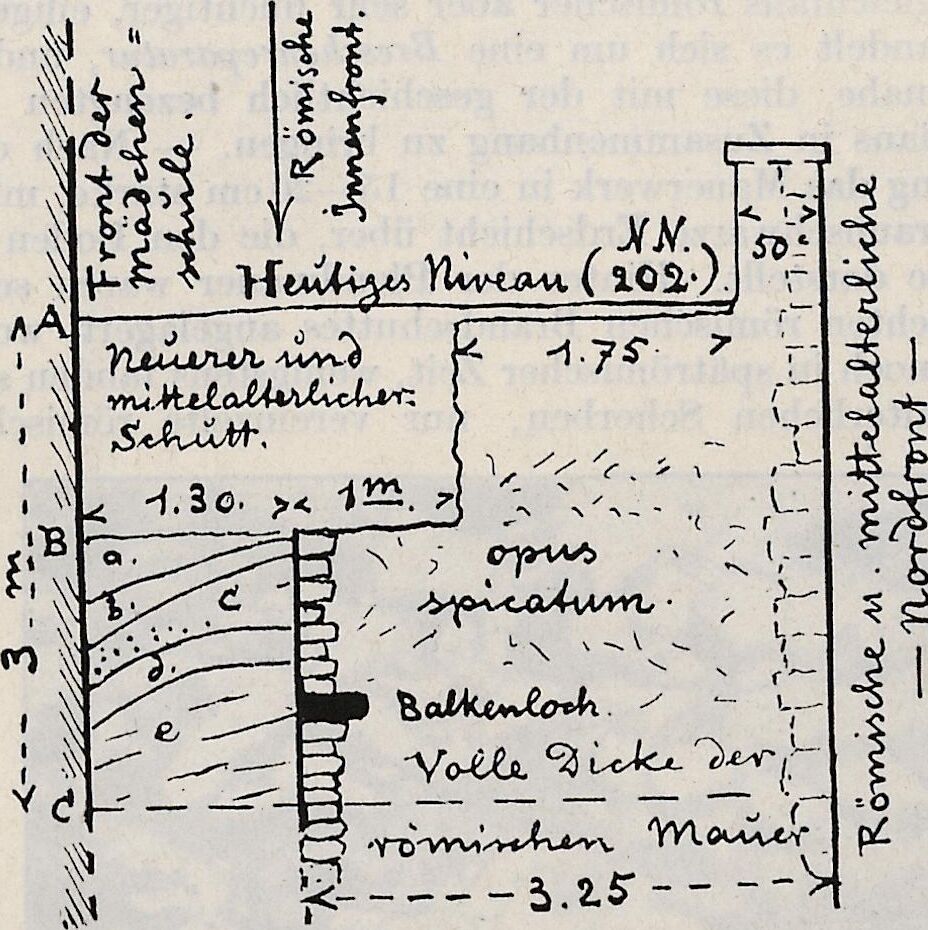 Front der
Mädchen=
schule.
Römische
Innenfront.
N.N.
Heutiges Niveau (202.)
50
A
1.75
Neuerer und
mittelalterlicher
Schutt.
1.30.
1m.
B
a.
b.
c
d.
e
3 m
opus
spicatum.
Balkenloch.
Volle Dicke der
C
römischen Mauer
3.25
Römische u. mittelalterliche
— Nordfront —